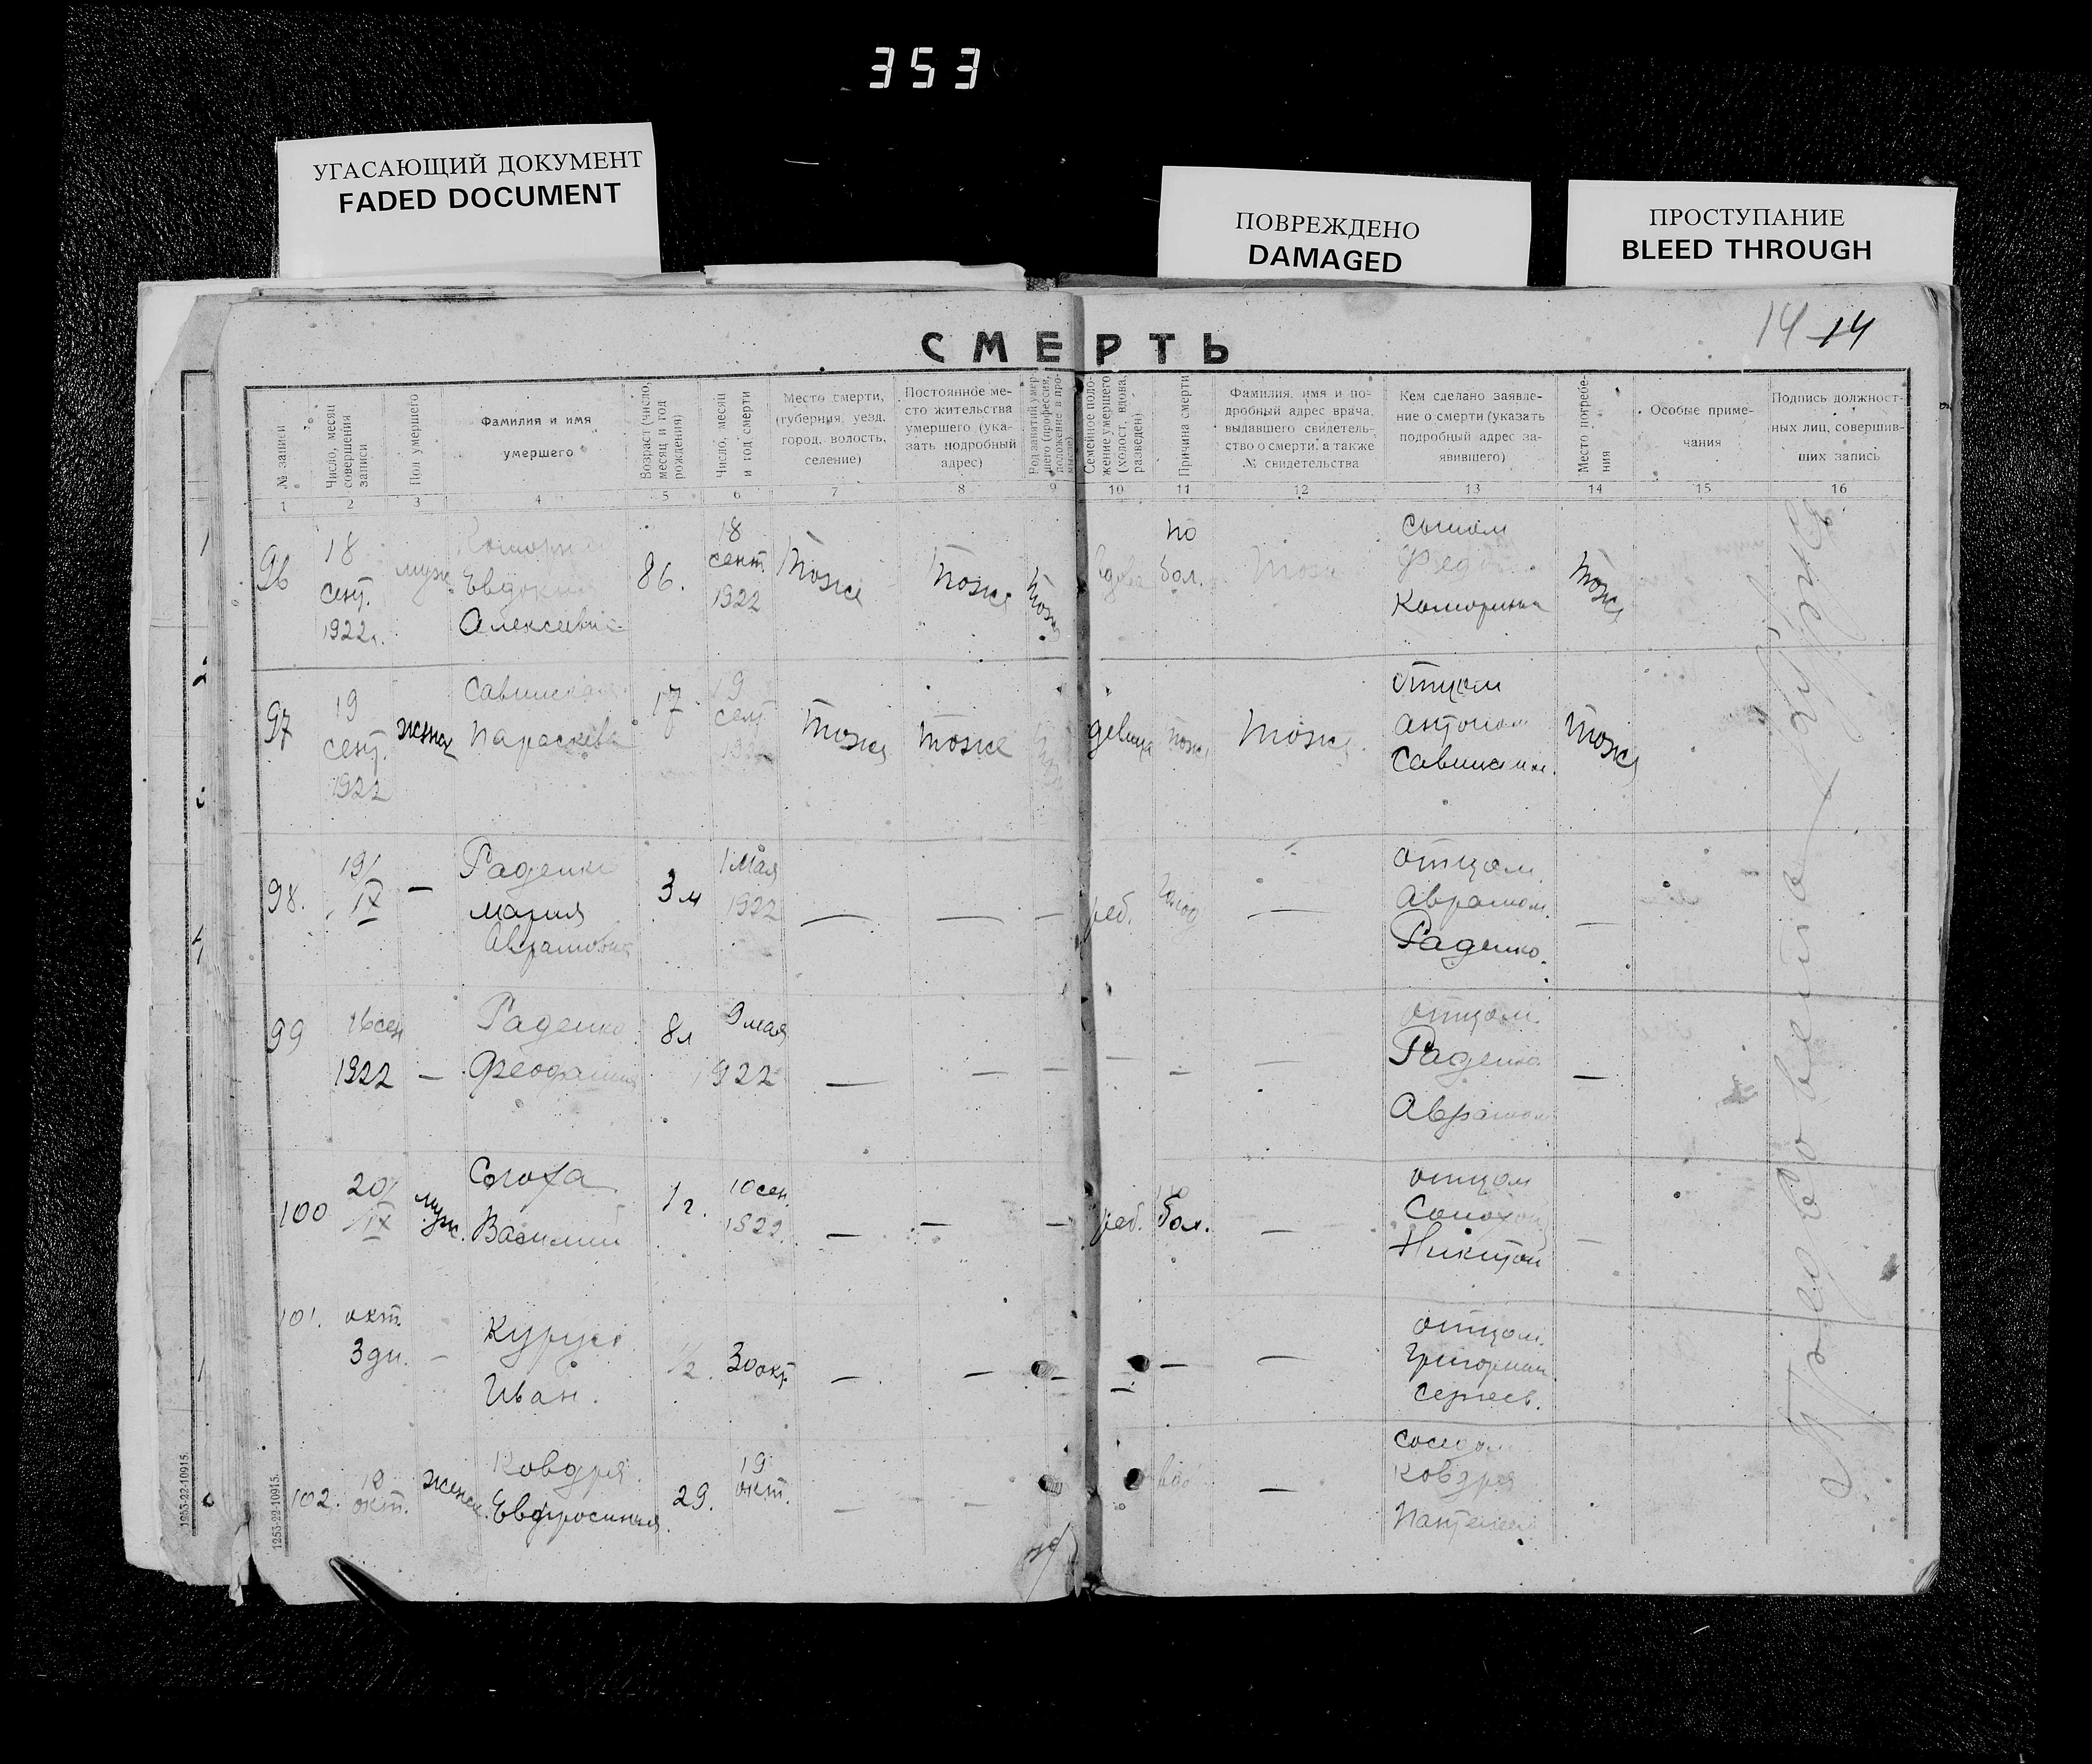 353
УГАСАЮЩИЙ ДОКУМЕНТ
FADED DOCUMENT
ПОВРЕЖДЕНО
DAMAGED
ПРОСТУПАНИЕ
BLEED THROUGH
14 14
СМЕРТЬ
№ записи
Число, месяц совершения записи
Пол умершего
Фамилия и имя
умершего
Возраст (число, месяц и год рождения)
Число, месяц и год смерти
Место смерти,
(губерния, уезд,
город, волость,
селение)
Постоянное ме-
сто жительства
умершего (ука-
зать подробный
адрес)
Род занятий умер-
шего (профессия,
положение в про-
мысле)
Семейное поло-
жение умершего
(холост, вдова,
разведен)
Причина смерти
Фамилия, имя и по-
дробный адрес врача,
выдавшего свидетель-
ство о смерти, а также
№ свидетельства
Кем сделано заявле-
ние о смерти (указать
подробный адрес за-
явившего)
Место погребе-
ния
Особые приме-
чания
Подпись должност-
ных лиц, совершив-
ших запись
1 2 3 4 5 6 7 8 9 10 11 12 13 14 15 16
96
18
сент.
1922г.
муж
Евдоким
Алексеевич
86.
18
сент.
1922
тоже
тоже
тоже
по
бол.
тоже
сыном
тоже
97
19
сент.
1922
женск
Савицкая
Параскева
17
19
сент
192
тоже
тоже
девица
тоже
тоже
отцом
Антоном
Савицким.
тоже
98.
19/
IX
—
Раденко
Мария
Аврамовна
3 м
1 мая
1922
—
—
—
реб.
голод
—
отцом
Аврамом.
Раденко.
—
99
16 сен
1922
—
Раденко
Феофания
8 л
9 мая
1922
—
—
—
—
—
—
отцом.
Раденко
Аврамом
—
100
20/
IX
муж.
Солоха
Василий
1 г.
10 сен.
1922
—
—
—
реб.
бол.
—
отцом
Солохой
Никитой
—
101.
окт.
3 дн.
—
Иван.
1/2.
30 окт
—
—
—
—
—
—
отцом.
Григорием
Сергеев.
102.
19
окт.
женск.
Ковдря
Евфросиния.
29.
19
окт.
—
—
—
соседом
Ковдря
Пантелей
1253-22-10915.
1253-22-10915.